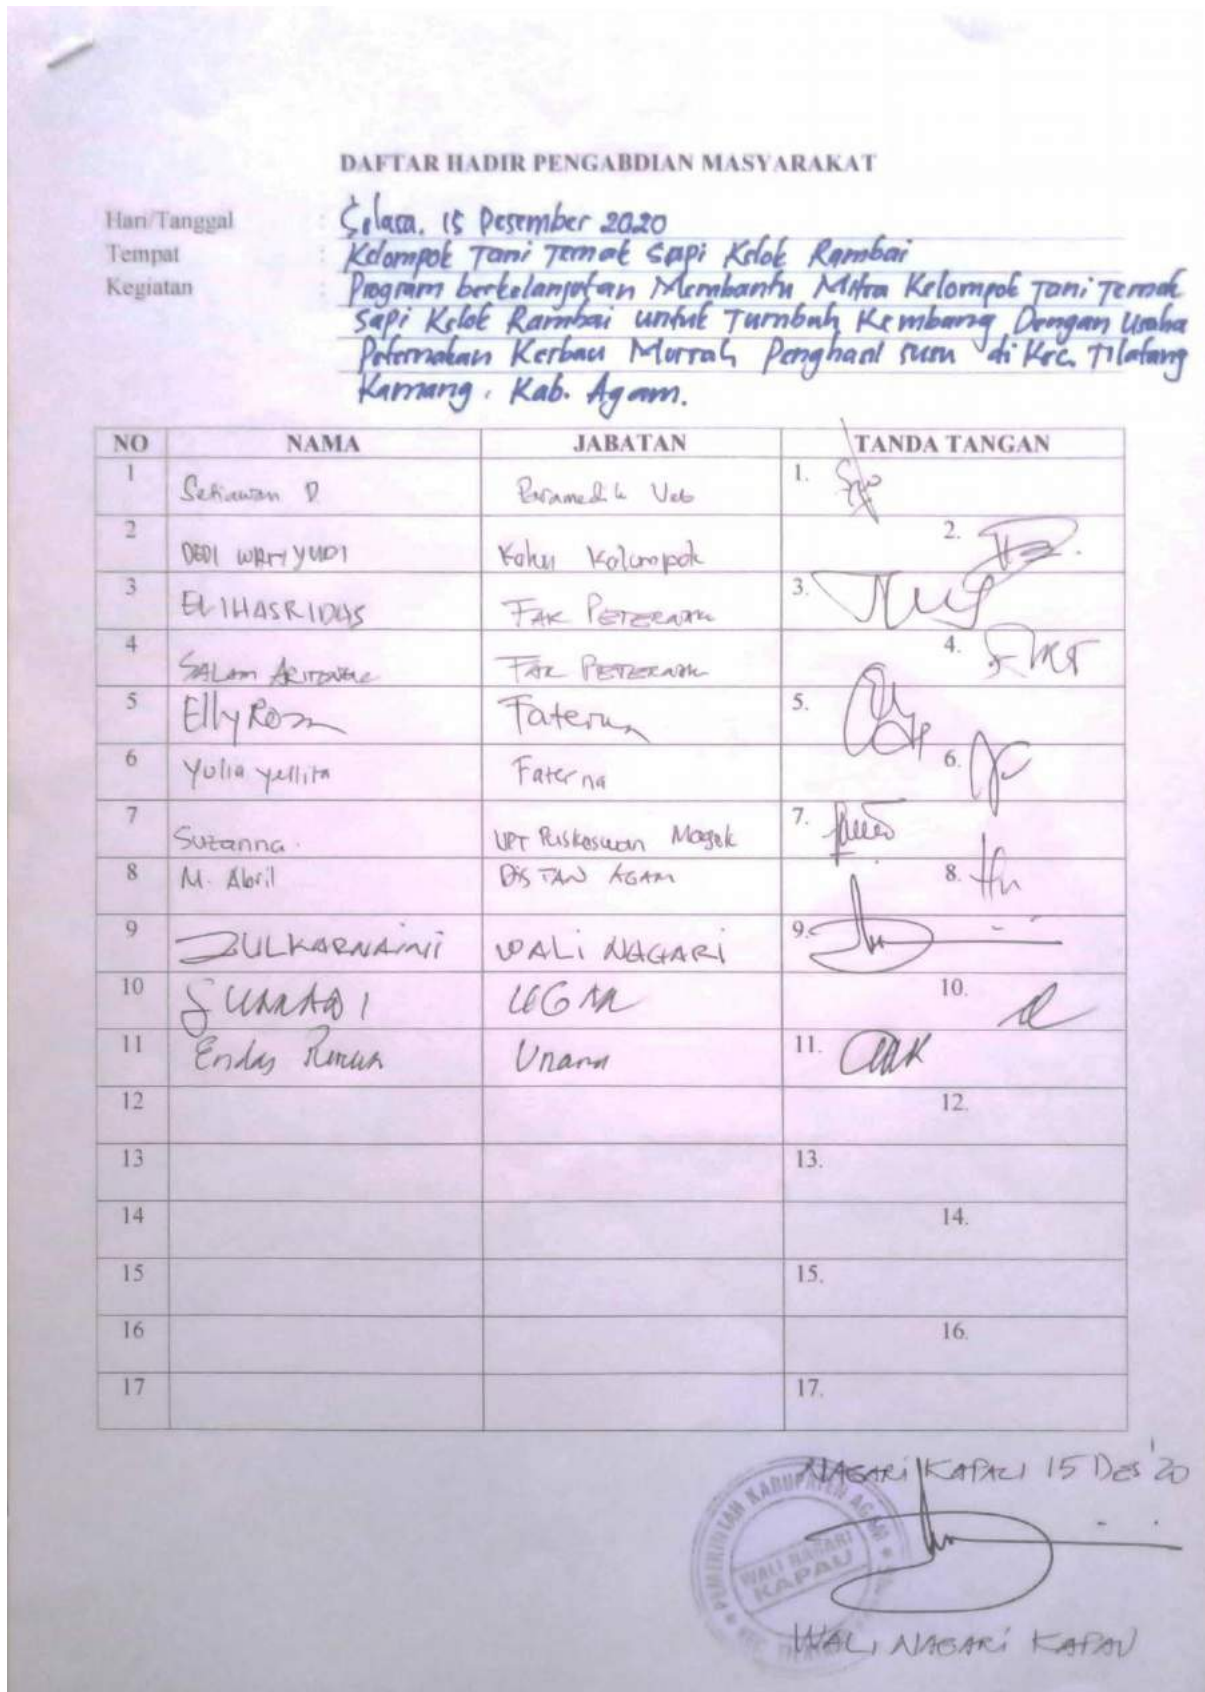 DAFTAR HADIR PENGABDIAN MASYARAKAT
Hari/Tanggal : Selasa, 15 Desember 2020
Tempat : Kelompok Tani Ternak Sapi Kelok Rambai
Kegiatan : Program berkelanjutan Membantu Mitra Kelompok Tani Ternak
Sapi Kelok Rambai untuk Tumbuh Kembang Dengan Usaha
Peternakan Kerbau Murrah Penghasil susu di Kec. Tilatang
Kamang, Kab. Agam.
NO NAMA JABATAN TANDA TANGAN
1 Setiawan D Paramedik Vet 1.
2 DEDI WAHYUDI Kelompok 2.
3 ELIHASRIDAS FAK PETERNAK 3.
4 SALAM FAK PETERNAK 4.
5 Elly Roza Faterna 5.
6 Yulia Yellita Faterna 6.
7 Suzanna. UPT Puskeswan Magek 7.
8 M. Abril DISTAN AGAM 8.
9 ZULKARNAINI WALI NAGARI 9.
10 10.
11 Endas 11.
12 12.
13 13.
14 14.
15 15.
16 16.
17 17.
NAGARI KAPAU 15 Des '20
PEMERINTAH KABUPATEN AGAM
WALI NAGARI
KAPAU
WALI NAGARI KAPAU